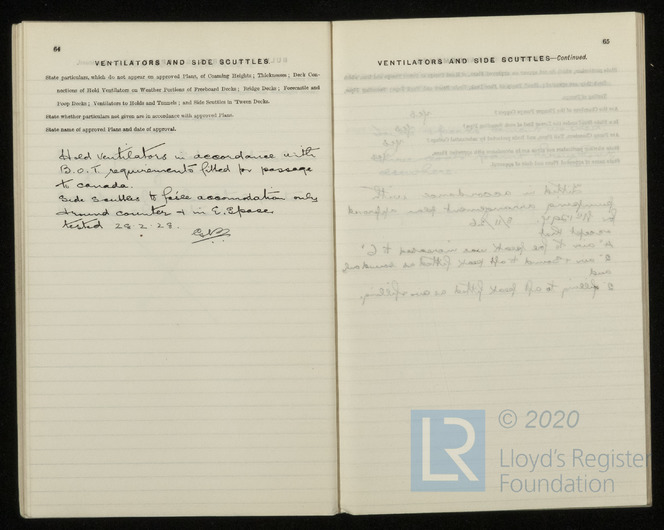 64
VENTILATORS AND SIDE SCUTTLES.
State particulars, which do not appear on approved Plans, of Coaming Heights; Thicknesses; Deck Con-
nections of Hold Ventilators on Weather Portions of Freeboard Decks; Bridge Decks; Forecastle and
Poop Decks; Ventilators to Holds and Tunnels; and Side Scuttles in 'Tween Decks.
State whether particulars not given are in accordance with approved Plans.
State name of approved Plans and date of approval.
Hold ventilators in accordance with
B.O.T. requirements fitted for passage
to canada.
Side scuttles to accomodation only
+ round counter + in E. Space
tested 28.2.28.
65
VENTILATORS AND SIDE SCUTTLES—Continued.
LR
© 2020
Lloyd's Register
Foundation